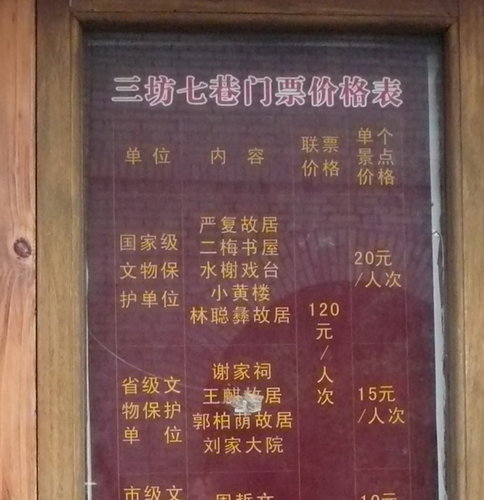 三坊七巷门票价格表
单位 内容 联票价格 单个景点价格
国家级文物保护单位
严复故居
二梅书屋
水榭戏台
小黄楼
林聪彝故居
120元/人次
20元/人次
省级文物保护单位
谢家祠
王麒故居
郭柏荫故居
刘家大院
15元/人次
市级文
10元